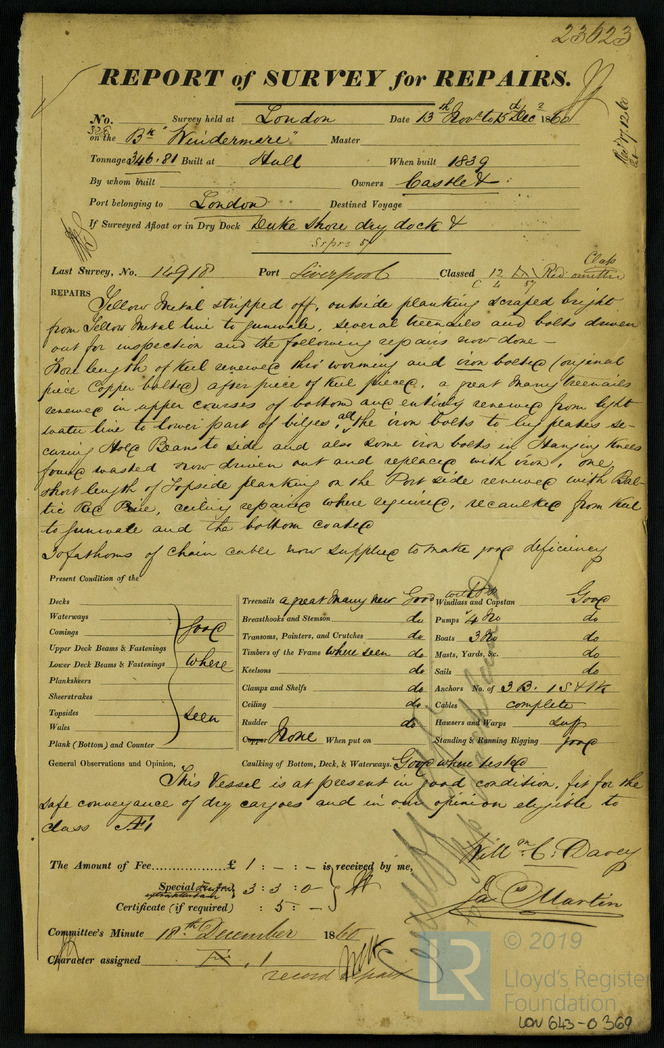 23623
REPORT of SURVEY for REPAIRS.
No. 326 Survey held at London Date 13th Novr to 15th Decr 1860
on the Bk "Windermere" Master
Tonnage 346.81 Built at Hull When built 1839
By whom built Owners Castle &
Port belonging to London Destined Voyage
If Surveyed Afloat or in Dry Dock Duke Shore dry dock &
Srprs 57
Last Survey, No. 14918 Port Liverpool Classed 12 Red Class omitted
C 4 57
REPAIRS Yellow Metal stripped off, outside planking scraped bright
from Yellow Metal line to gunwale, several treenails and bolts driven
out for inspection and the following repairs now done —
Fore length of keel renewed thro' worming and iron bolted (original
piece Copper bolted) after piece of keel pieced, a great many treenails
renewed in upper courses of bottom and entirely renewed from light
water line to lower part of bilges, all the iron bolts to lug plates se-
curing Hold Beams to side and also some iron bolts in Hanging Knees
found wasted now driven out and replaced with iron, one
short length of Topside planking on the Port side renewed with Bal-
tic Red Pine, ceiling repaired where required, recaulked from keel
to gunwale and the bottom coated
fathoms of chain cable now supplied to make good deficiency
Present Condition of the
Decks
Waterways
Comings
Upper Deck Beams & Fastenings
Lower Deck Beams & Fastenings
Planksheers
Sheerstrakes
Topsides
Wales
Plank (Bottom) and Counter
good
where
seen
Treenails a great many new Good
Breasthooks and Stemson do
Transoms, Pointers, and Crutches do
Timbers of the Frame where seen do
Keelsons do
Clamps and Shelfs do
Ceiling do
Rudder do
Copper None When put on
Caulking of Bottom, Deck, & Waterways. Good where tested
Windlass and Capstan Good
Pumps 4 No do
Boats 3 No do
Masts, Yards, &c. do
Sails do
Anchors No. of 3 B. 1 S & 1 K
Cables complete
Hawsers and Warps suff
Standing & Running Rigging good
General Observations and Opinion,
This Vessel is at present in good condition, fit for the
safe conveyance of dry cargoes and in our opinion eligible to
class Æ 1
Willm C. Davey
Jas Martin
The Amount of Fee £ 1 : - : - is received by me,
Special 3 : 3 : 0
Certificate (if required) : 5 : -
Committee's Minute 18th December 1860
Character assigned Æ 1
record repair
© 2019
LR
Lloyd's Register
Foundation
LON 643-0369